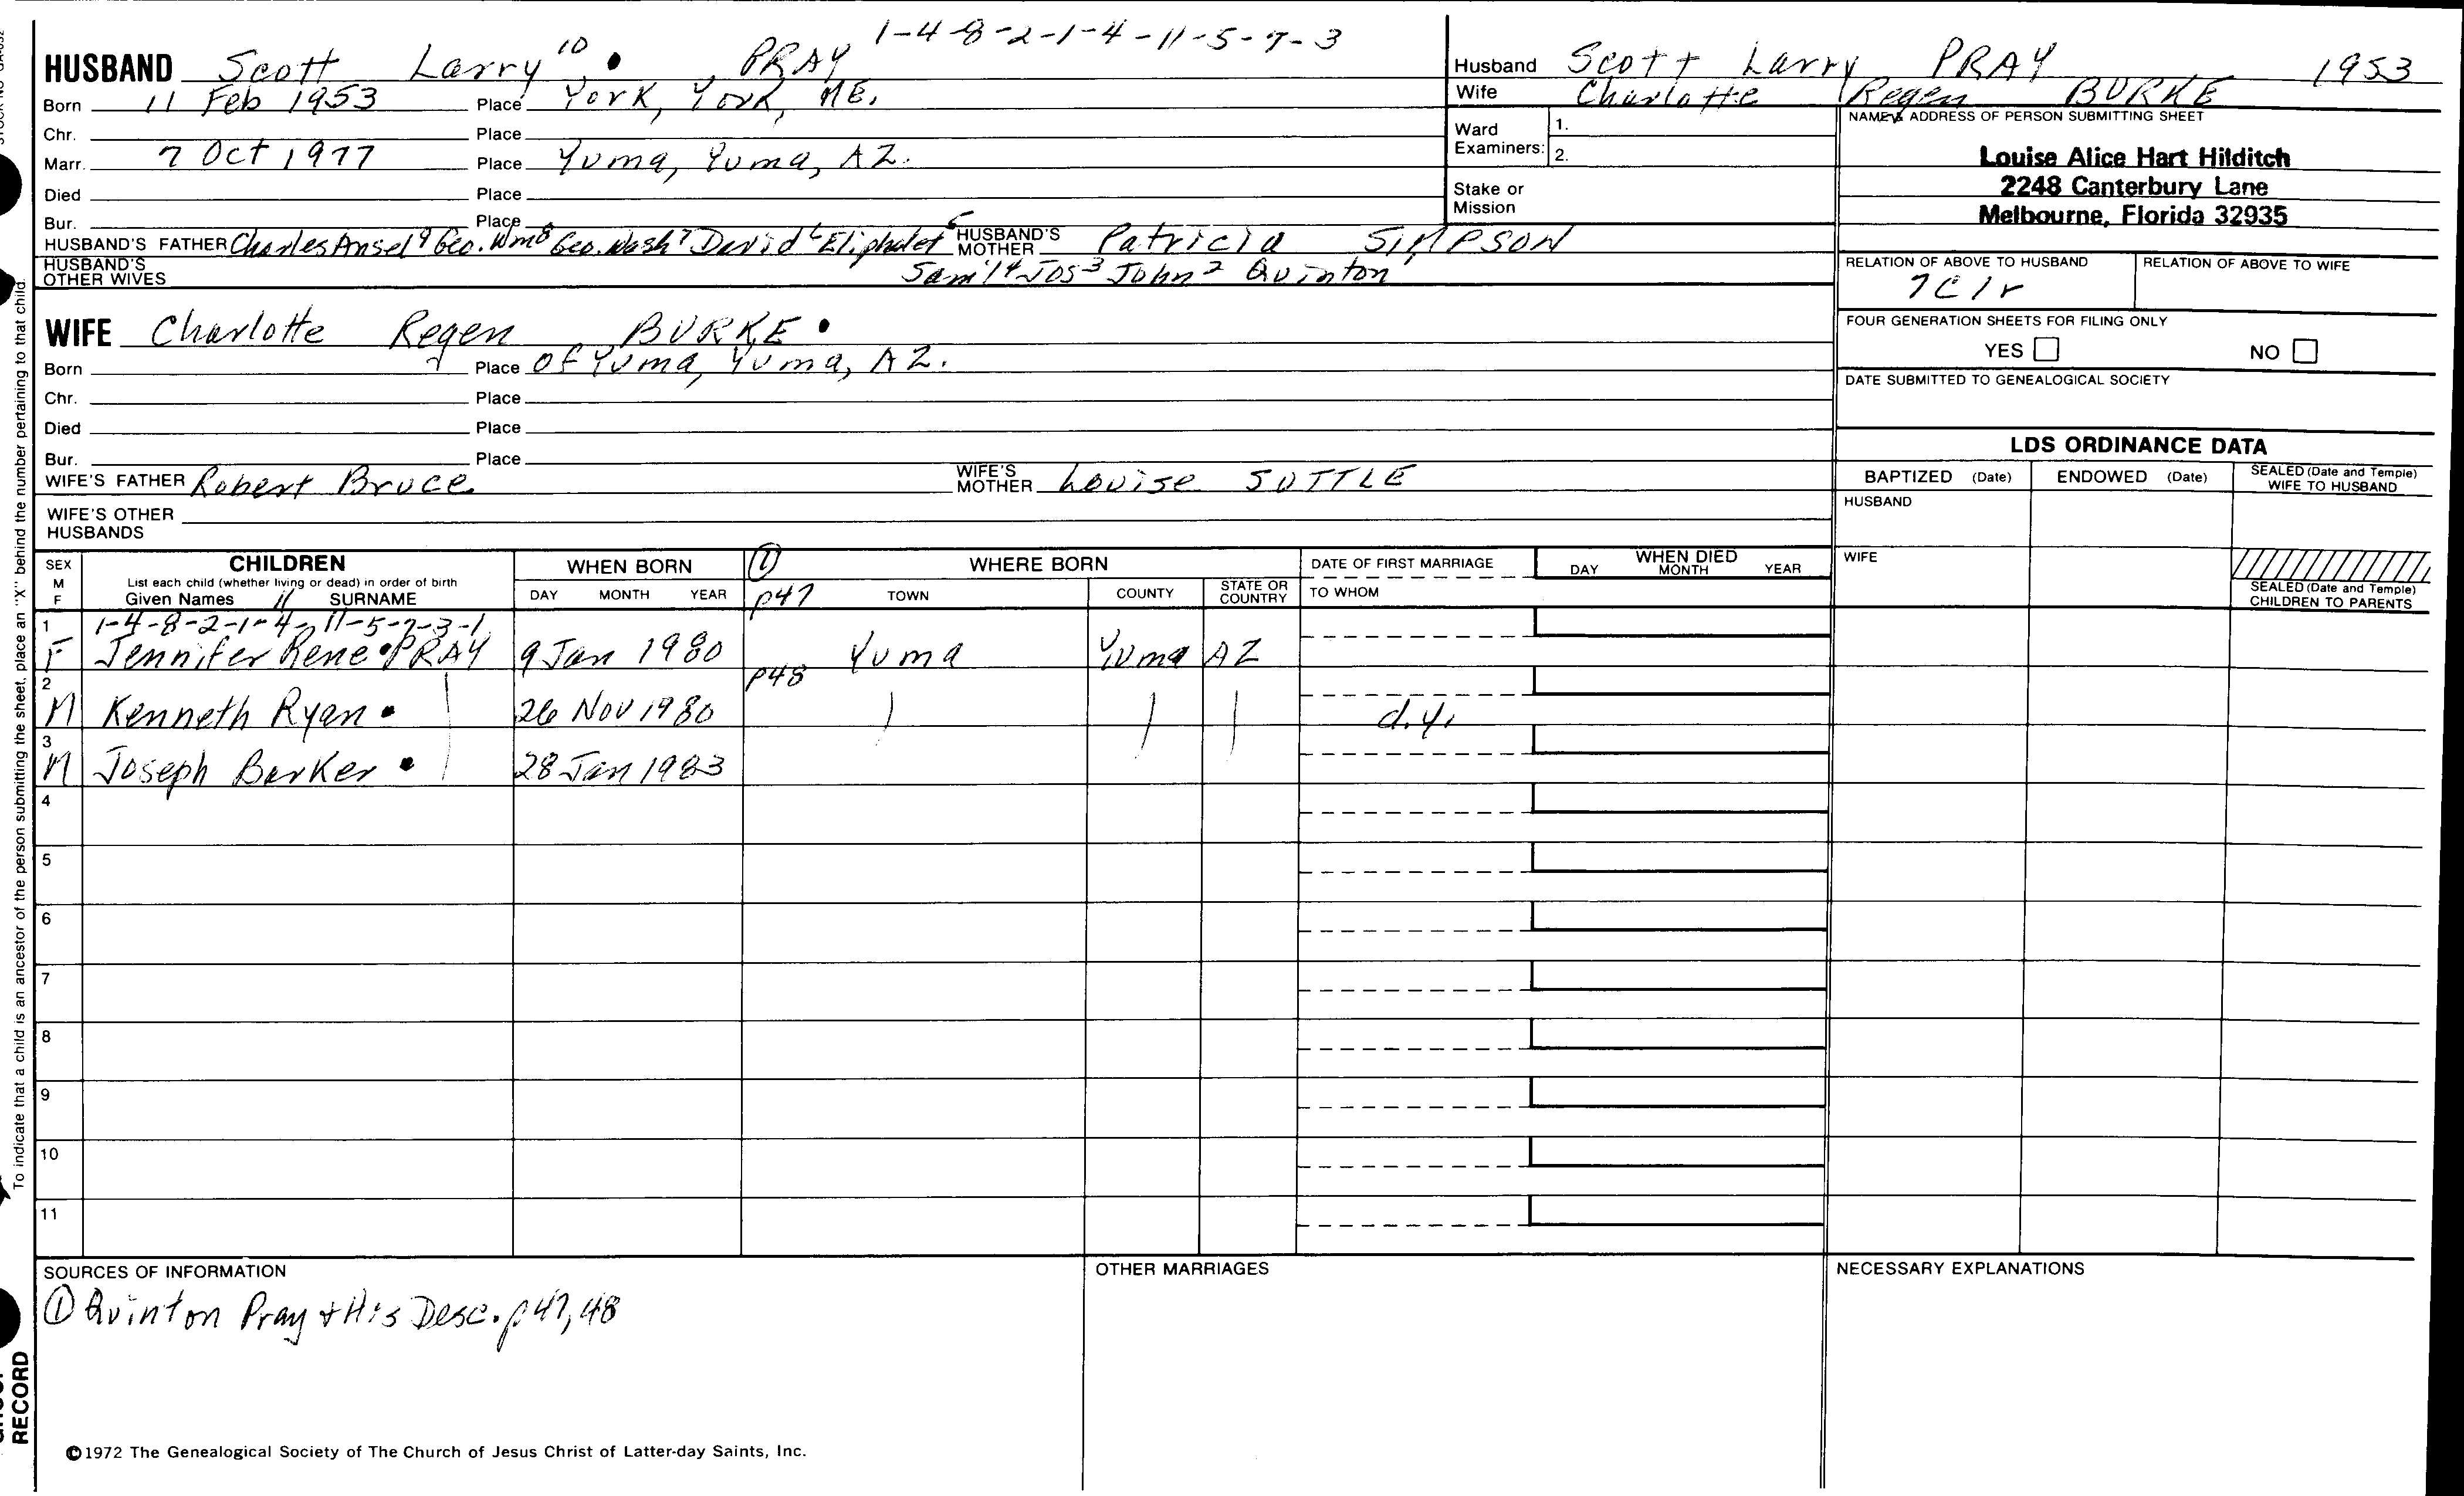 1-4-8-2-1-4-11-5-7-3
HUSBAND Scott Larry 10 PRAY
Born 11 Feb 1953 Place York, York, ME.
Chr. Place
Marr. 7 Oct 1977 Place Yuma, Yuma, AZ.
Died Place
Bur. Place
HUSBAND'S FATHER Charles Ansel 9 Geo. Wm 8 Geo. Wash 7 David 6 Eliphalet 5 HUSBAND'S MOTHER Patricia SIMPSON
HUSBAND'S OTHER WIVES Sam'l 4 Jos 3 John 2 Quinton
WIFE Charlotte Regen BURKE
Born Place Of Yuma, Yuma, AZ.
Chr. Place
Died Place
Bur. Place
WIFE'S FATHER Robert Bruce WIFE'S MOTHER Louise SUTTLE
WIFE'S OTHER HUSBANDS
Husband Scott Larry PRAY 1953
Wife Charlotte Regen BURKE
Ward Examiners: 1.
2.
Stake or Mission
NAME & ADDRESS OF PERSON SUBMITTING SHEET
Louise Alice Hart Hilditch
2248 Canterbury Lane
Melbourne, Florida 32935
RELATION OF ABOVE TO HUSBAND RELATION OF ABOVE TO WIFE
7C1r
FOUR GENERATION SHEETS FOR FILING ONLY
YES NO
DATE SUBMITTED TO GENEALOGICAL SOCIETY
LDS ORDINANCE DATA
BAPTIZED (Date) ENDOWED (Date) SEALED (Date and Temple) WIFE TO HUSBAND
HUSBAND
WIFE
SEALED (Date and Temple) CHILDREN TO PARENTS
SEX M F CHILDREN WHEN BORN ① WHERE BORN DATE OF FIRST MARRIAGE WHEN DIED
List each child (whether living or dead) in order of birth
Given Names 11 SURNAME DAY MONTH YEAR p47 TOWN COUNTY STATE OR COUNTRY TO WHOM DAY MONTH YEAR
1 1-4-8-2-1-4-11-5-7-3-1
F Jennifer Rene PRAY 9 Jan 1980 Yuma Yuma AZ
2 p48
M Kenneth Ryan 26 Nov 1980 d.y.
3
M Joseph Barker 28 Jan 1983
4
5
6
7
8
9
10
11
SOURCES OF INFORMATION OTHER MARRIAGES NECESSARY EXPLANATIONS
① Quinton Pray + His Desc. p47,48
©1972 The Genealogical Society of The Church of Jesus Christ of Latter-day Saints, Inc.
To indicate that a child is an ancestor of the person submitting the sheet, place an "X" behind the number pertaining to that child.
RECORD